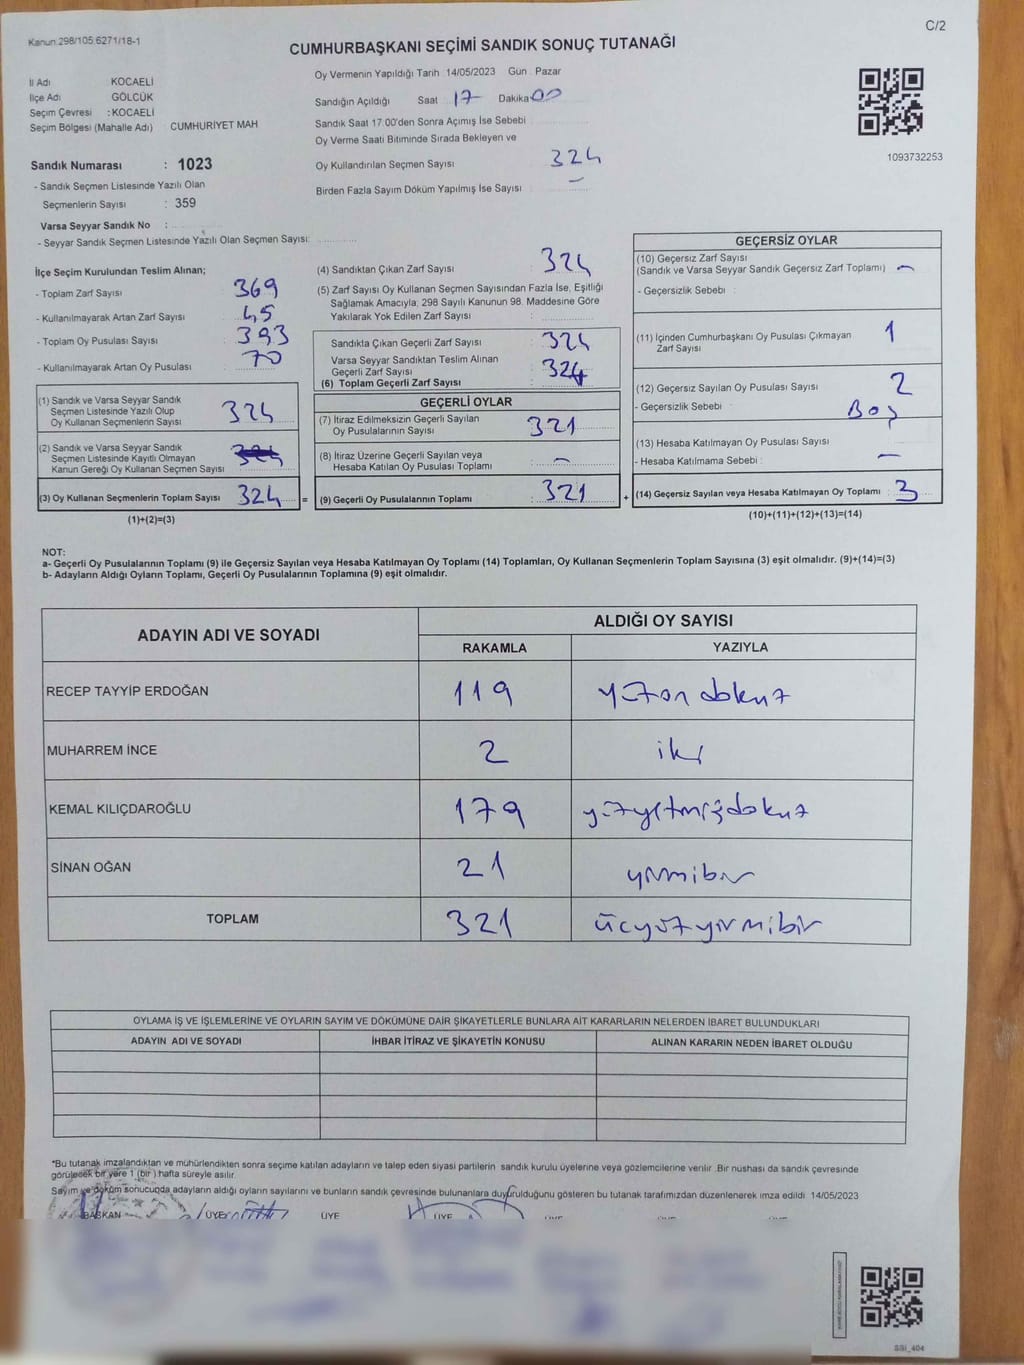 Kanun:298/105.6271/18-1
C/2
CUMHURBAŞKANI SEÇİMİ SANDIK SONUÇ TUTANAĞI
İl Adı KOCAELİ
İlçe Adı GÖLCÜK
Seçim Çevresi : KOCAELİ
Seçim Bölgesi (Mahalle Adı) CUMHURİYET MAH
Sandık Numarası : 1023
- Sandık Seçmen Listesinde Yazılı Olan
Seçmenlerin Sayısı : 359
Varsa Seyyar Sandık No :
- Seyyar Sandık Seçmen Listesinde Yazılı Olan Seçmen Sayısı:
Oy Vermenin Yapıldığı Tarih : 14/05/2023 Gün : Pazar
Sandığın Açıldığı Saat 17 Dakika 00
Sandık Saat 17.00'den Sonra Açımış İse Sebebi
Oy Verme Saati Bitiminde Sırada Bekleyen ve
Oy Kullandırılan Seçmen Sayısı 324
Birden Fazla Sayım Döküm Yapılmış İse Sayısı : –
1093732253
İlçe Seçim Kurulundan Teslim Alınan;
- Toplam Zarf Sayısı 369
- Kullanılmayarak Artan Zarf Sayısı : 45
- Toplam Oy Pusulası Sayısı : 393
- Kullanılmayarak Artan Oy Pusulası 70
(1) Sandık ve Varsa Seyyar Sandık
Seçmen Listesinde Yazılı Olup
Oy Kullanan Seçmenlerin Sayısı 324
(2) Sandık ve Varsa Seyyar Sandık
Seçmen Listesinde Kayıtlı Olmayan
Kanun Gereği Oy Kullanan Seçmen Sayısı
(3) Oy Kullanan Seçmenlerin Toplam Sayısı 324 =
(1)+(2)=(3)
(4) Sandıktan Çıkan Zarf Sayısı : 324
(5) Zarf Sayısı Oy Kullanan Seçmen Sayısından Fazla İse, Eşitliği
Sağlamak Amacıyla; 298 Sayılı Kanunun 98. Maddesine Göre
Yakılarak Yok Edilen Zarf Sayısı :
Sandıkta Çıkan Geçerli Zarf Sayısı : 324
Varsa Seyyar Sandıktan Teslim Alınan
Geçerli Zarf Sayısı
(6) Toplam Geçerli Zarf Sayısı : 324
GEÇERLİ OYLAR
(7) İtiraz Edilmeksizin Geçerli Sayılan
Oy Pusulalarının Sayısı 321
(8) İtiraz Üzerine Geçerli Sayılan veya
Hesaba Katılan Oy Pusulası Toplamı : –
(9) Geçerli Oy Pusulalarının Toplamı : 321 +
GEÇERSİZ OYLAR
(10) Geçersiz Zarf Sayısı
(Sandık ve Varsa Seyyar Sandık Geçersiz Zarf Toplamı) –
- Geçersizlik Sebebi :
(11) İçinden Cumhurbaşkanı Oy Pusulası Çıkmayan
Zarf Sayısı 1
(12) Geçersiz Sayılan Oy Pusulası Sayısı : 2
- Geçersizlik Sebebi : Boş
(13) Hesaba Katılmayan Oy Pusulası Sayısı
- Hesaba Katılmama Sebebi : –
(14) Geçersiz Sayılan veya Hesaba Katılmayan Oy Toplamı : 3
(10)+(11)+(12)+(13)=(14)
NOT:
a- Geçerli Oy Pusulalarının Toplamı (9) ile Geçersiz Sayılan veya Hesaba Katılmayan Oy Toplamı (14) Toplamları, Oy Kullanan Seçmenlerin Toplam Sayısına (3) eşit olmalıdır. (9)+(14)=(3)
b- Adayların Aldığı Oyların Toplamı, Geçerli Oy Pusulalarının Toplamına (9) eşit olmalıdır.
ADAYIN ADI VE SOYADI ALDIĞI OY SAYISI
RAKAMLA YAZIYLA
RECEP TAYYİP ERDOĞAN 119 yüzondokuz
MUHARREM İNCE 2 iki
KEMAL KILIÇDAROĞLU 179 yüzyetmişdokuz
SİNAN OĞAN 21 yirmibir
TOPLAM 321 üçyüzyirmibir
OYLAMA İŞ VE İŞLEMLERİNE VE OYLARIN SAYIM VE DÖKÜMÜNE DAİR ŞİKAYETLERLE BUNLARA AİT KARARLARIN NELERDEN İBARET BULUNDUKLARI
ADAYIN ADI VE SOYADI İHBAR İTİRAZ VE ŞİKAYETİN KONUSU ALINAN KARARIN NEDEN İBARET OLDUĞU
*Bu tutanak imzalandıktan ve mühürlendikten sonra seçime katılan adayların ve talep eden siyasi partilerin sandık kurulu üyelerine veya gözlemcilerine verilir. Bir nüshası da sandık çevresinde
görülecek bir yere 1 (bir ) hafta süreyle asılır.
Sayım ve döküm sonucunda adayların aldığı oyların sayılarını ve bunların sandık çevresinde bulunanlara duyurulduğunu gösteren bu tutanak tarafımızdan düzenlenerek imza edildi. 14/05/2023
BAŞKAN ÜYE ÜYE ÜYE
SSİ_404